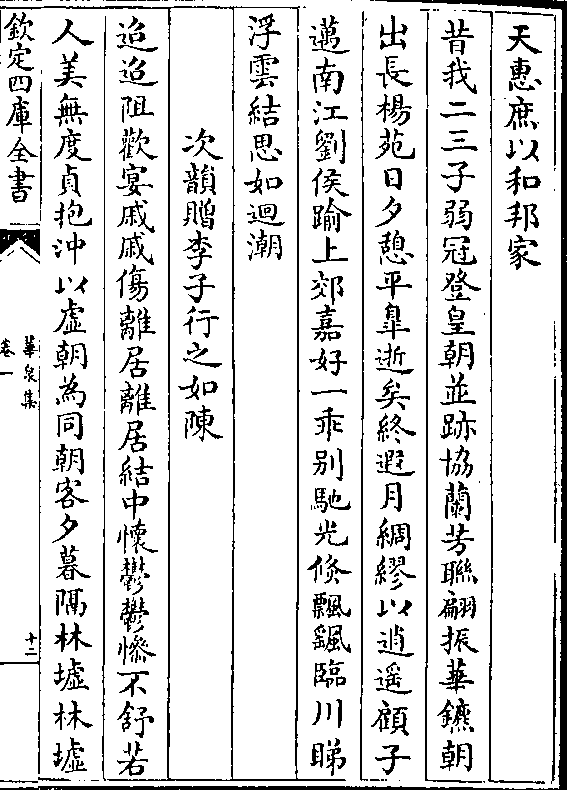 天惠庶以和邦家
昔我二三子弱冠登皇朝並跡協蘭芳聯翩振華鑣朝
出長楊苑日夕憩平臯逝矣終遐月綢繆以逍遥顧子
邁南江劉侯踰上郊嘉好一乖别馳光倏飄颻臨川睇
浮雲結思如迴潮
次韻贈李子行之如陳
迢迢阻歡宴戚戚傷離居離居結中懷鬱鬱慘不舒若
人美無度貞抱沖以虛朝為同朝客夕暮隔林墟林墟
欽定四庫全書
華泉集
卷一
十二